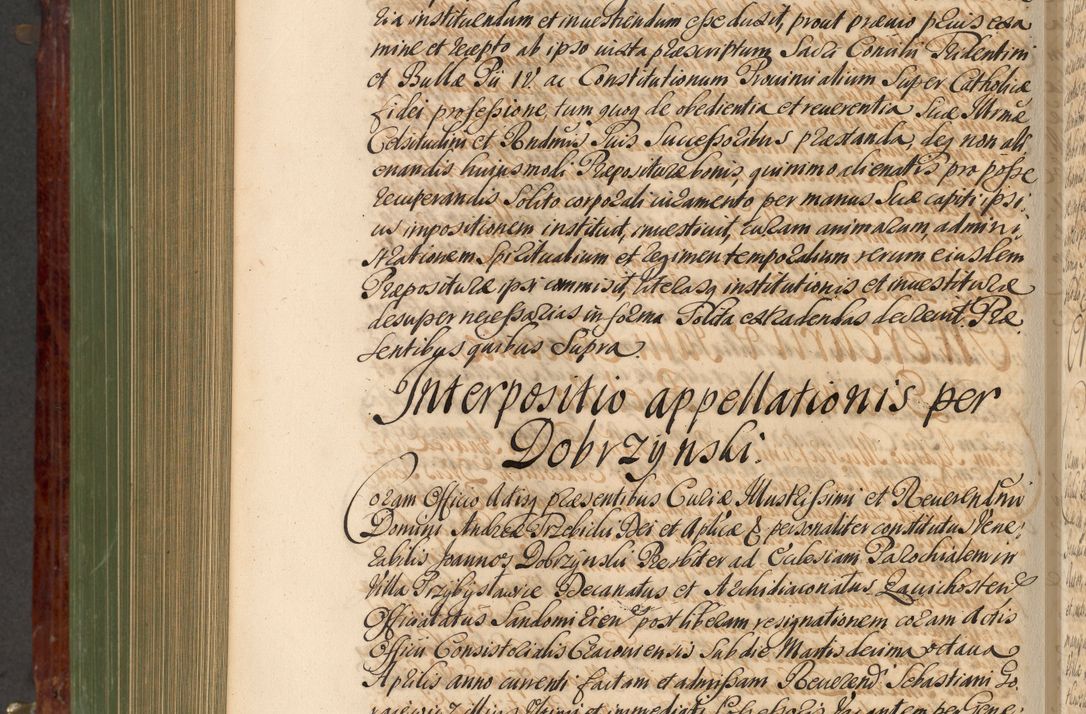 ria instituendum et inuestiendum esse duxit, prout praevio prius exa
mine et recepto ab ipso iuxta praescriptum Sacri Concilii Tridentini
et Bullae Pii IV. ac Constitutionum Prouincialium Super Catholicae
fidei professione, tum quoq de obedientia et reuerentia Suae Illrmae
Celsitudini et Rndmis Suis Successoribus praestanda, deq non ali
enandis huiusmodi Praepositurae bonis, quinimo alienatis pro posse
recuperandis Solito corporali iuramento per manus Suae capiti ipsi
us impositionem instituit, inuestiuit, curam animarum, admini,
strationem Spiritualium et regimen temporalium rerum eiusdem
Praepositurae ipsi commisit, literasq institutionis et inuestiturae
desuper necessarias in forma Solita extradendas decreuit. Prae
sentibus quibus Supra.
Interpositio appellationis per
Dobrzynski.
Coram Officio Actisq praesentibus Curiae Illustrissimi et Reuerendmi
Domini Andreae Trzebicki Dei et Aplicae & personaliter constitutus Vene,
rabilis Joannes Dobrzynski Presbiter ad Ecclesiam Parochialem in
Villa Przybysławice Decanatus et Archidiaconatus Zauichosten
Officialatus Sandomirien post liberam resignationem coram Actis
Officii Consistorialis Cracouiensis Sub die Martis decima octaua
Aprilis anno currenti factam et admissam Reuerend Sebastiani Go